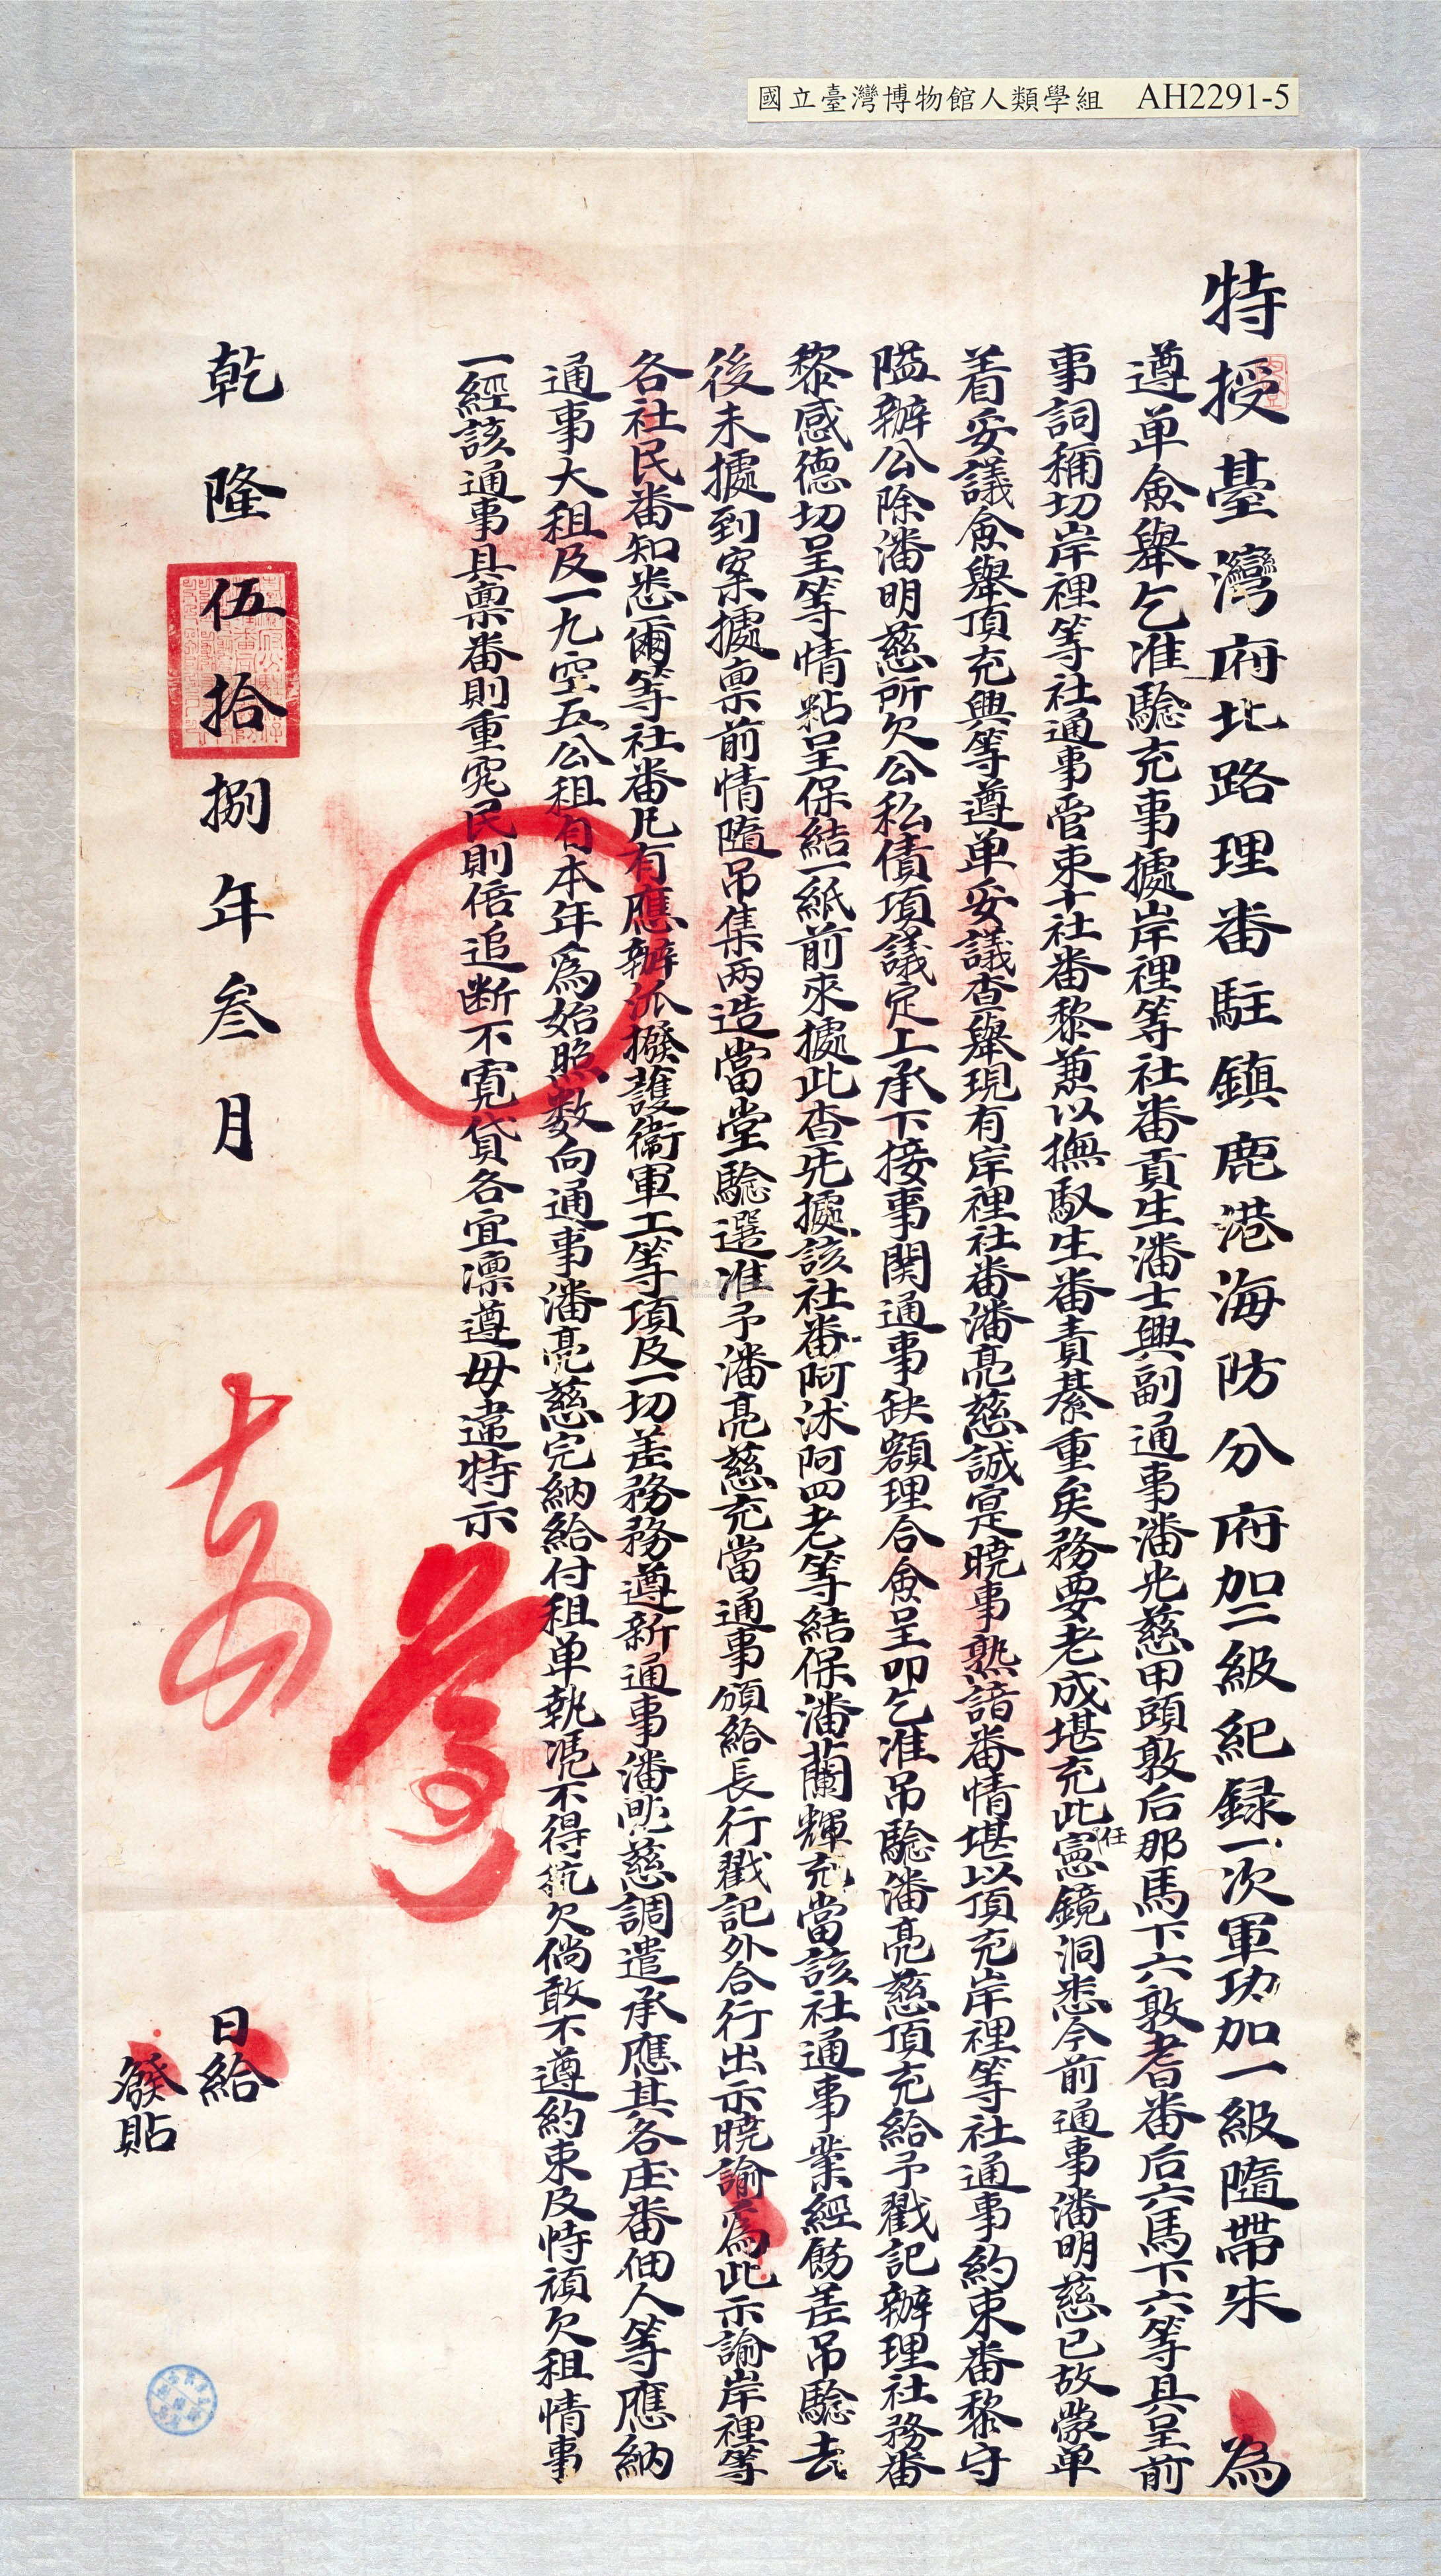 國立臺灣博物館人類學組 AH2291-5
特授臺灣府北路理番駐鎮鹿港海防分府加二級紀録一次軍功加一級隨帶朱 為
遵单僉舉乞准騐充事據岸裡等社番貢生潘士興副通事潘光慈甲頭敦后那馬下六敦耆番后六馬下六等具呈前
事詞稱切岸裡等社通事管束十社番黎兼以撫馭生番責綦重矣務要老成堪充此任憲鏡洞悉今前通事潘明慈已故蒙单
着妥議僉舉頂充興等遵单妥議查舉現有岸裡社番潘亮慈誠寔曉事熟諳番情堪以頂充岸裡等社通事約束番黎守
隘辦公除潘明慈所欠公私債項議定上承下接事関通事缺額理合僉呈叩乞准吊騐潘亮慈頂充給予戳記辦理社務番
黎感德切呈等情粘呈保結一紙前來據此查先據該社番阿沭阿四老等結保潘蘭輝充當該社通事業經飭差吊騐去
後未據到案據禀前情隨吊集两造當堂騐選准予潘亮慈充當通事頒給長行戳記外合行出示曉諭為此示諭岸裡等
各社民番知悉爾等社番凡有應辦派撥護衛軍工等項及一切差務務遵新通事潘亮慈調遣承應其各庄番佃人等應納
通事大租及一九空五公租自本年為始照数向通事潘亮慈完納給付租单執凭不得抗欠倘敢不遵約束及恃頑欠租情事
一經該通事具禀番則重究民則倍追断不寛貸各宜凛遵毋違特示
遵
乾隆伍拾捌年叁月 日給
發貼